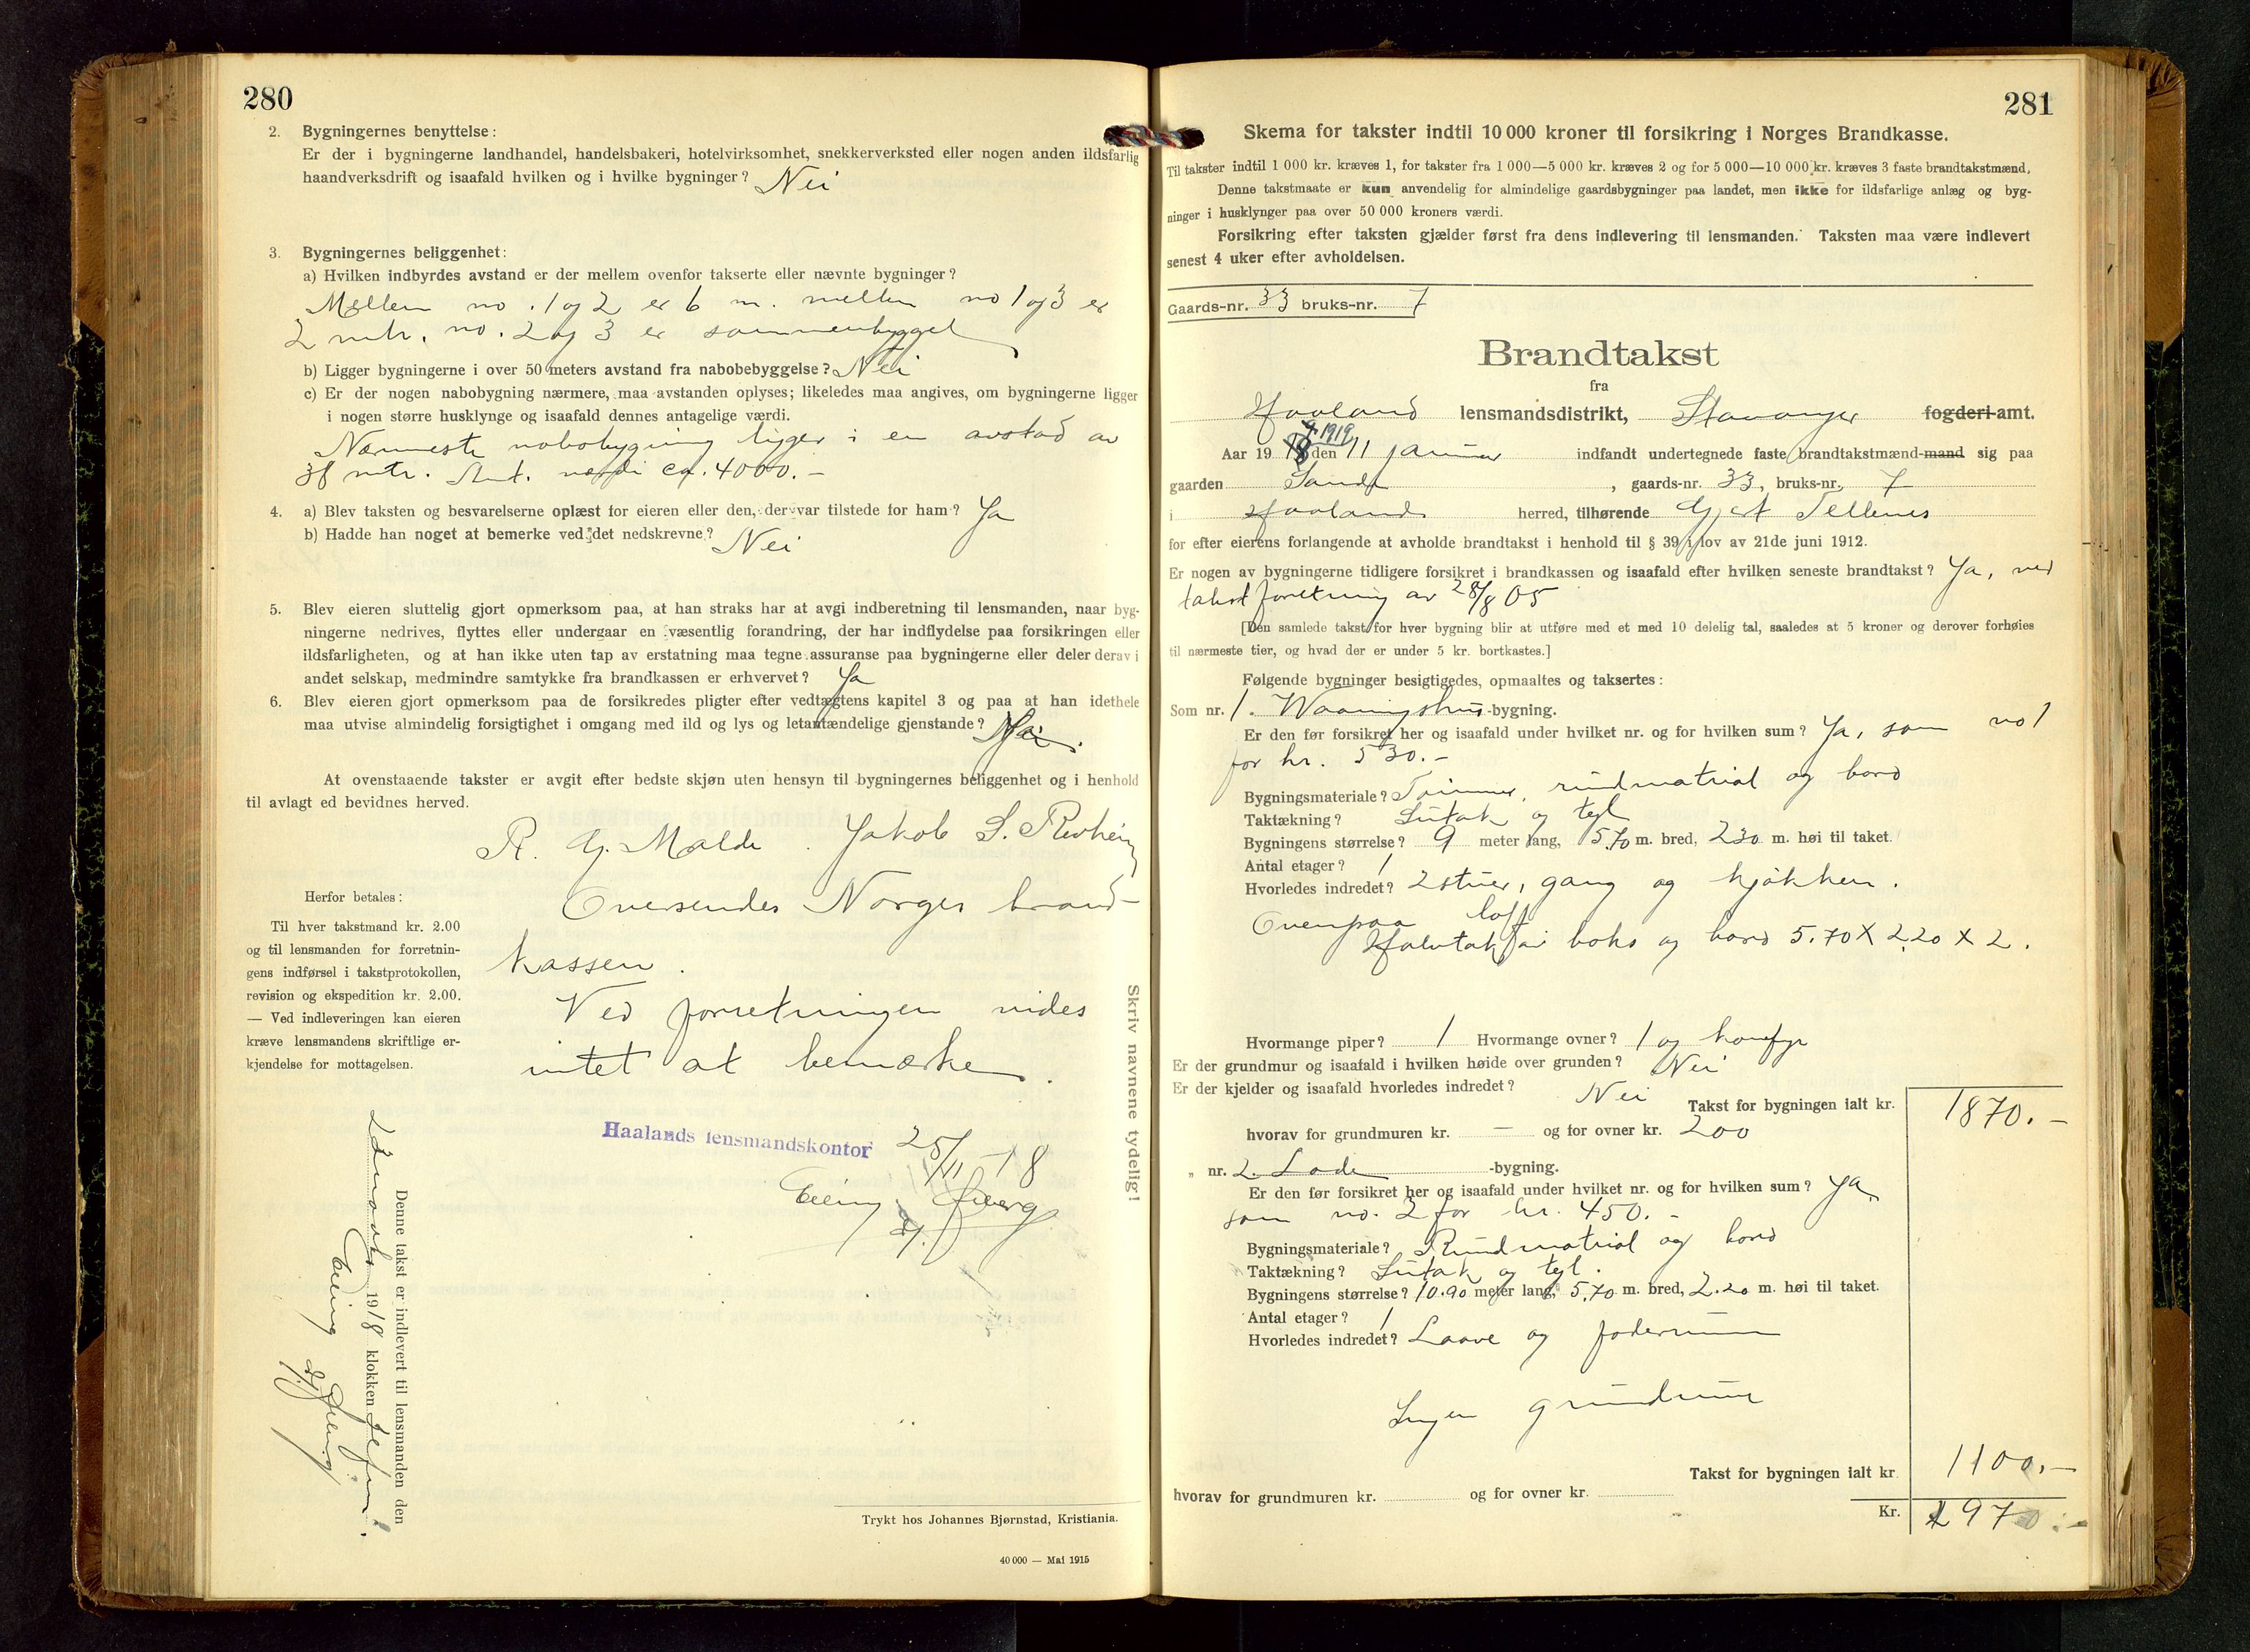 280
2. Bygningernes benyttelse:
Er der i bygningerne landhandel, handelsbakeri, hotelvirksomhet, snekkerverksted eller nogen anden ildsfarlig
haandverksdrift og isaafald hvilken og i hvilke bygninger? Nei
3. Bygningernes beliggenhet:
a) Hvilken indbyrdes avstand er der mellem ovenfor takserte eller nævnte bygninger?
Mellem no. 1 og 2 er 6 m. mellem no 1 og 3 er
2 mtr. no. 2 og 3 er sammenbygget
b) Ligger bygningerne i over 50 meters avstand fra nabobebyggelse? Nei
c) Er der nogen nabobygning nærmere, maa avstanden oplyses; likeledes maa angives, om bygningerne ligger
i nogen større husklynge og isaafald dennes antagelige værdi.
Nærmeste nabobygning ligger i en avstad av
38 mtr. Ant. værdi ca. 4000.-
4. a) Blev taksten og besvarelserne oplæst for eieren eller den, der var tilstede for ham? Ja
b) Hadde han noget at bemerke ved det nedskrevne? Nei
5. Blev eieren sluttelig gjort opmerksom paa, at han straks har at avgi indberetning til lensmanden, naar byg-
ningerne nedrives, flyttes eller undergaar en væsentlig forandring, der har indflydelse paa forsikringen eller
ildsfarligheten, og at han ikke uten tap av erstatning maa tegne assuranse paa bygningerne eller deler derav i
andet selskap, medmindre samtykke fra brandkassen er erhvervet? Ja
6. Blev eieren gjort opmerksom paa de forsikredes pligter efter vedtægtens kapitel 3 og paa at han idethele
maa utvise almindelig forsigtighet i omgang med ild og lys og letantændelige gjenstande? Ja.
At ovenstaaende takster er avgit efter bedste skjøn uten hensyn til bygningernes beliggenhet og i henhold
til avlagt ed bevidnes herved.
R. G. Malde. Jakob S. Revheim
Herfor betales:
Til hver takstmand kr. 2.00
og til lensmanden for forretnin-
gens indførsel i takstprotokollen,
revision og ekspedition kr. 2.00.
— Ved indleveringen kan eieren
kræve lensmandens skriftlige er-
kjendelse for mottagelsen.
Oversendes Norges brand-
kassen.
Ved forretningen vides
intet at bemærke.
Haalands lensmandskontor 25/11-18
Elling
Skriv navnene tydelig!
Denne takst er indlevert til lensmanden den
1918 klokken
Elling
Trykt hos Johannes Bjørnstad, Kristiania.
40 000 — Mai 1915
281
Skema for takster indtil 10 000 kroner til forsikring i Norges Brandkasse.
Til takster indtil 1 000 kr. kræves 1, for takster fra 1 000—5 000 kr. kræves 2 og for 5 000—10 000 kr. kræves 3 faste brandtakstmænd.
Denne takstmaate er kun anvendelig for almindelige gaardsbygninger paa landet, men ikke for ildsfarlige anlæg og byg-
ninger i husklynger paa over 50 000 kroners værdi.
Forsikring efter taksten gjælder først fra dens indlevering til lensmanden. Taksten maa være indlevert
senest 4 uker efter avholdelsen.
Gaards-nr. 33 bruks-nr. 7
Brandtakst
fra
Haaland lensmandsdistrikt, Stavanger fogderi-amt.
1919
Aar 1918 den 11 januar indfandt undertegnede faste brandtakstmænd-mand sig paa
gaarden Sande, gaards-nr. 33, bruks-nr. 7
i Haaland herred, tilhørende Gjert Tellenes
for efter eierens forlangende at avholde brandtakst i henhold til § 39 i lov av 21de juni 1912.
Er nogen av bygningerne tidligere forsikret i brandkassen og isaafald efter hvilken seneste brandtakst? Ja, ved
takst forretning av 28/8 05
[Den samlede takst for hver bygning blir at utføre med et med 10 delelig tal, saaledes at 5 kroner og derover forhøies
til nærmeste tier, og hvad der er under 5 kr. bortkastes.]
Følgende bygninger besigtigedes, opmaaltes og taksertes:
Som nr. 1. Waaningshus-bygning.
Er den før forsikret her og isaafald under hvilket nr. og for hvilken sum? Ja, som no 1
for kr. 530.-
Bygningsmateriale? Tømmer, rundmatrial og bord
Taktækning? Sutak og tegl
Bygningens størrelse? 9 meter lang, 5.70 m. bred, 2.30 m. høi til taket.
Antal etager? 1
Hvorledes indredet? 2 stuer, gang og kjøkken.
Ovenpaa loft
Halvtak boks og bord 5.70 X 2.20 X 2.
Hvormange piper? 1 Hvormange ovner? 1 og komfyr
Er der grundmur og isaafald i hvilken høide over grunden? Nei
Er der kjelder og isaafald hvorledes indredet? Nei
Takst for bygningen ialt kr. 1870.-
hvorav for grundmuren kr. — og for ovner kr. 200
„ nr. 2. Lade -bygning.
Er den før forsikret her og isaafald under hvilket nr. og for hvilken sum? Ja
som no. 2 for kr. 450.-
Bygningsmateriale? Rundmatrial og bord
Taktækning? Sutak og tegl.
Bygningens størrelse? 10.90 meter lang, 5.70 m. bred, 2.20 m. høi til taket.
Antal etager? 1
Hvorledes indredet? Laave og foderrum
Ingen grundmur
Takst for bygningen ialt kr 1100.-
hvorav for grundmuren kr. og for ovner kr.
Kr. 2970.-